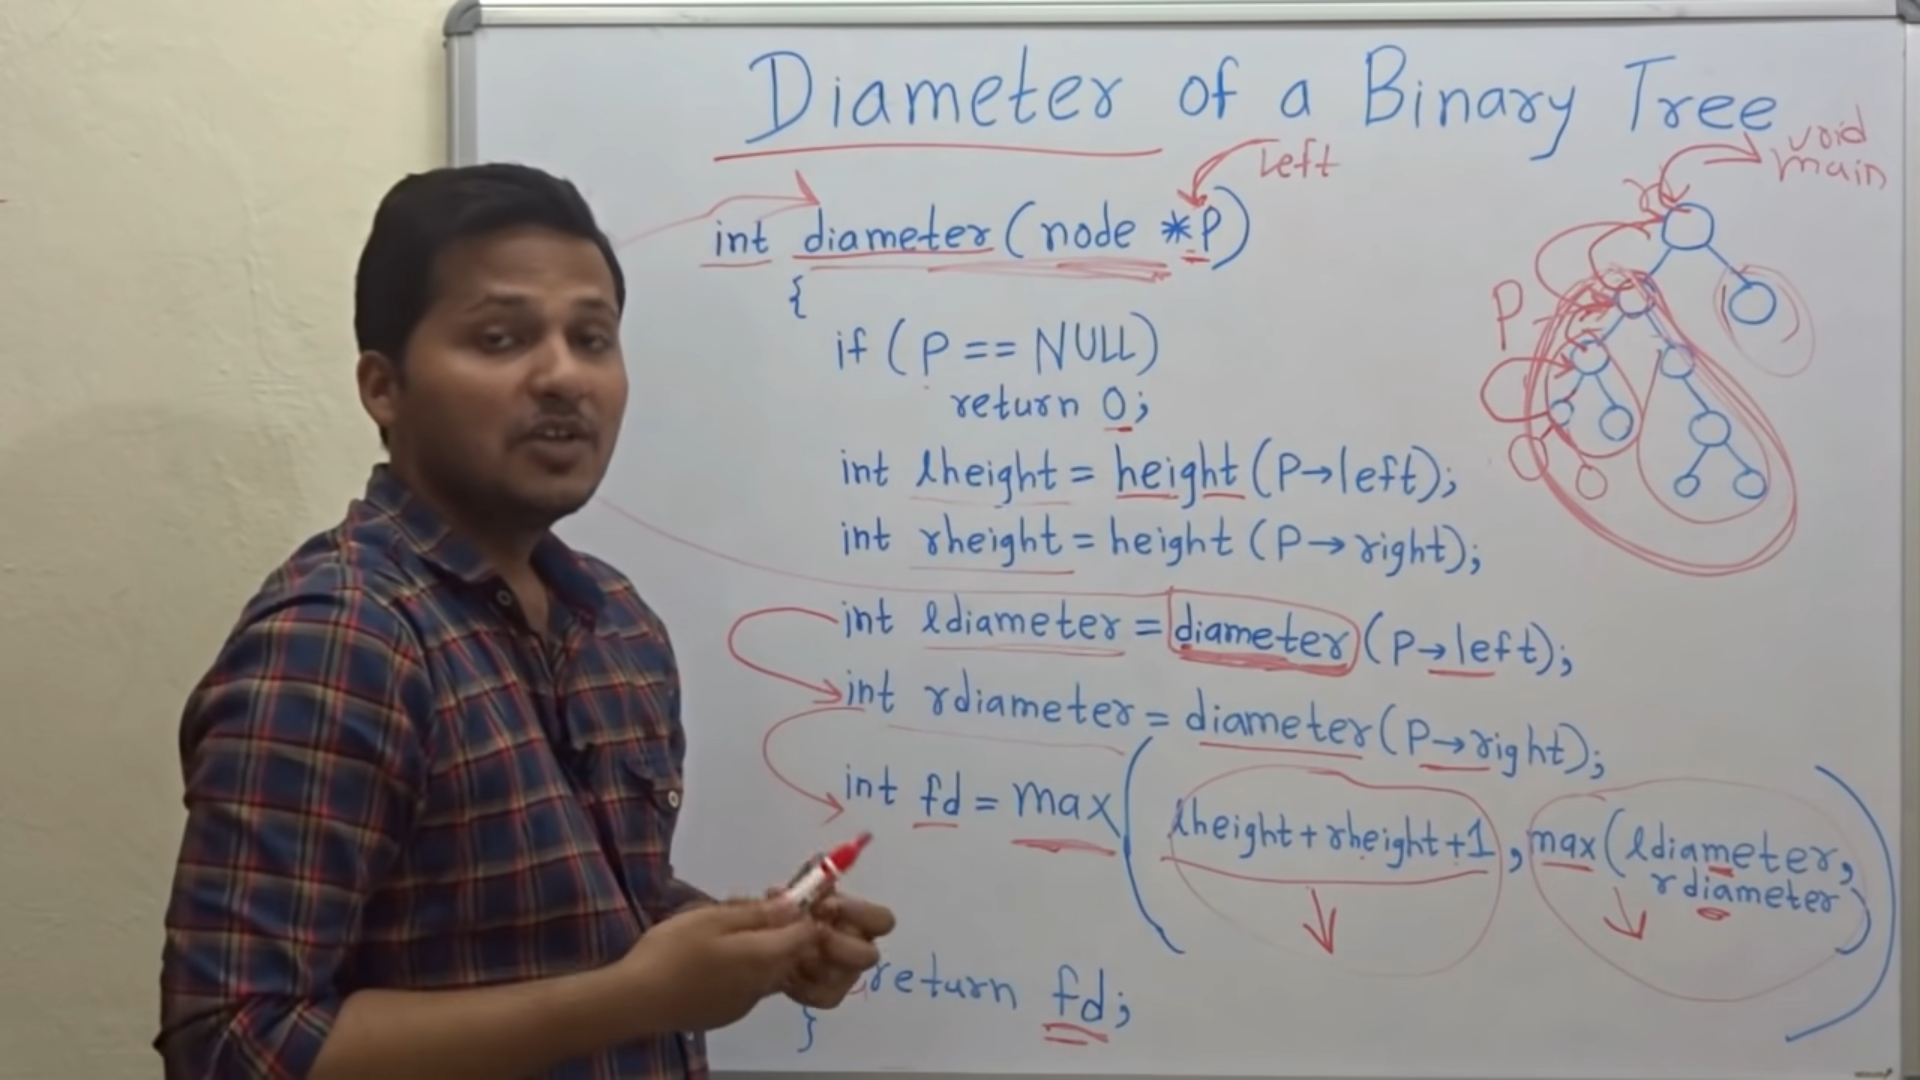 Diameter of a Binary Tree
void
main
left
int diameter(node *P)
{
P
if (P == NULL)
return 0;
int lheight = height(P→left);
int rheight = height(P→right);
int ldiameter = diameter(P→left);
int rdiameter = diameter(P→right);
int fd = max(lheight+rheight+1, max(ldiameter,
rdiameter))
return fd;
}